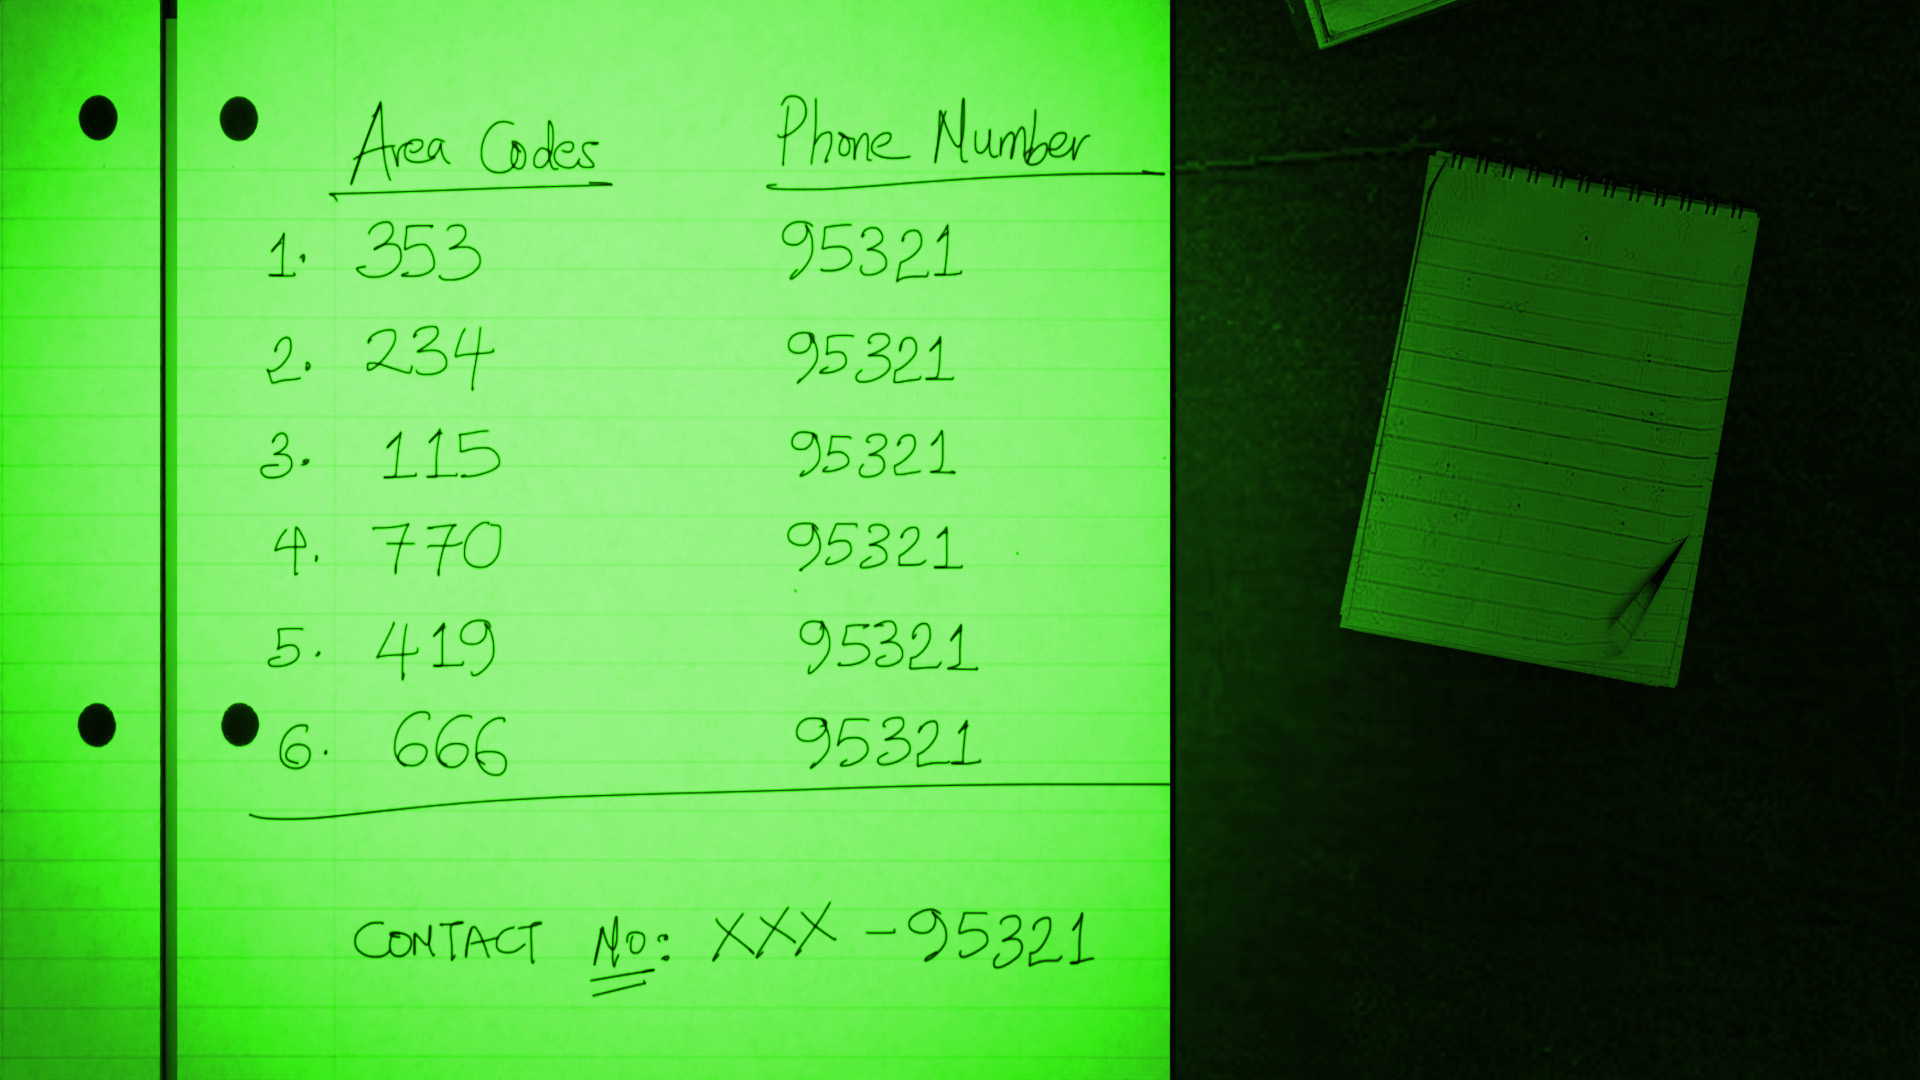 Area Codes Phone Number
1. 353 95321
2. 234 95321
3. 115 95321
4. 770 95321
5. 419 95321
6. 666 95321
CONTACT No: XXX - 95321